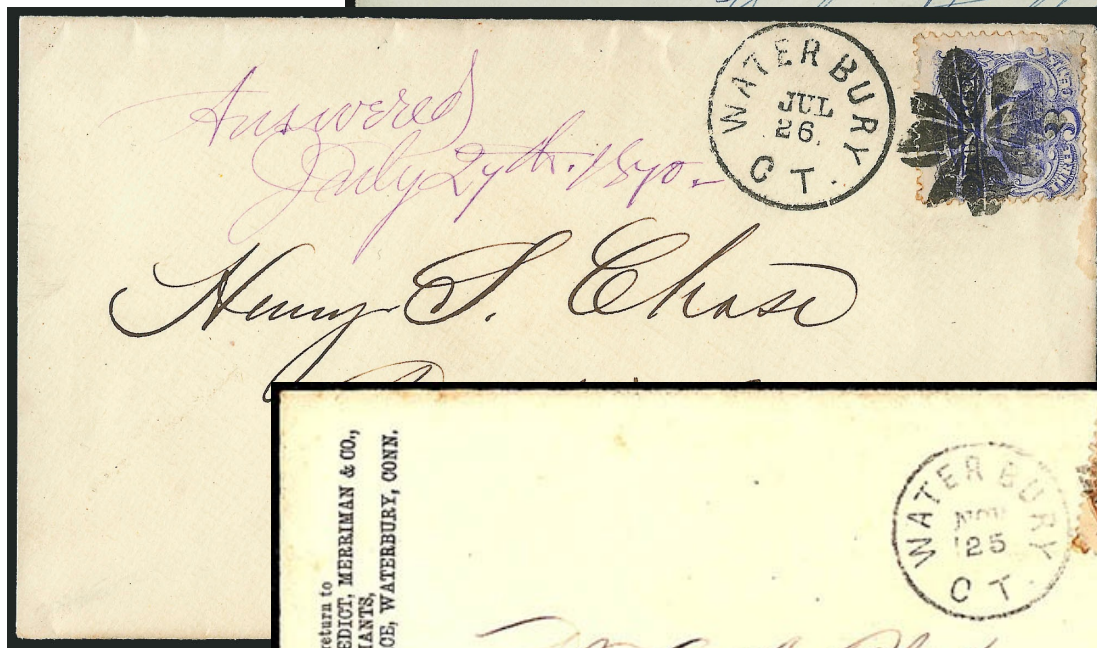 Answered
July 27th. 1870.
WATERBURY
JUL
26.
CT.
3
Henry S. Chase
return to
EDICT, MERRIMAN & CO.,
HANTS,
CE, WATERBURY, CONN.
WATERBURY
NOV
25
CT.